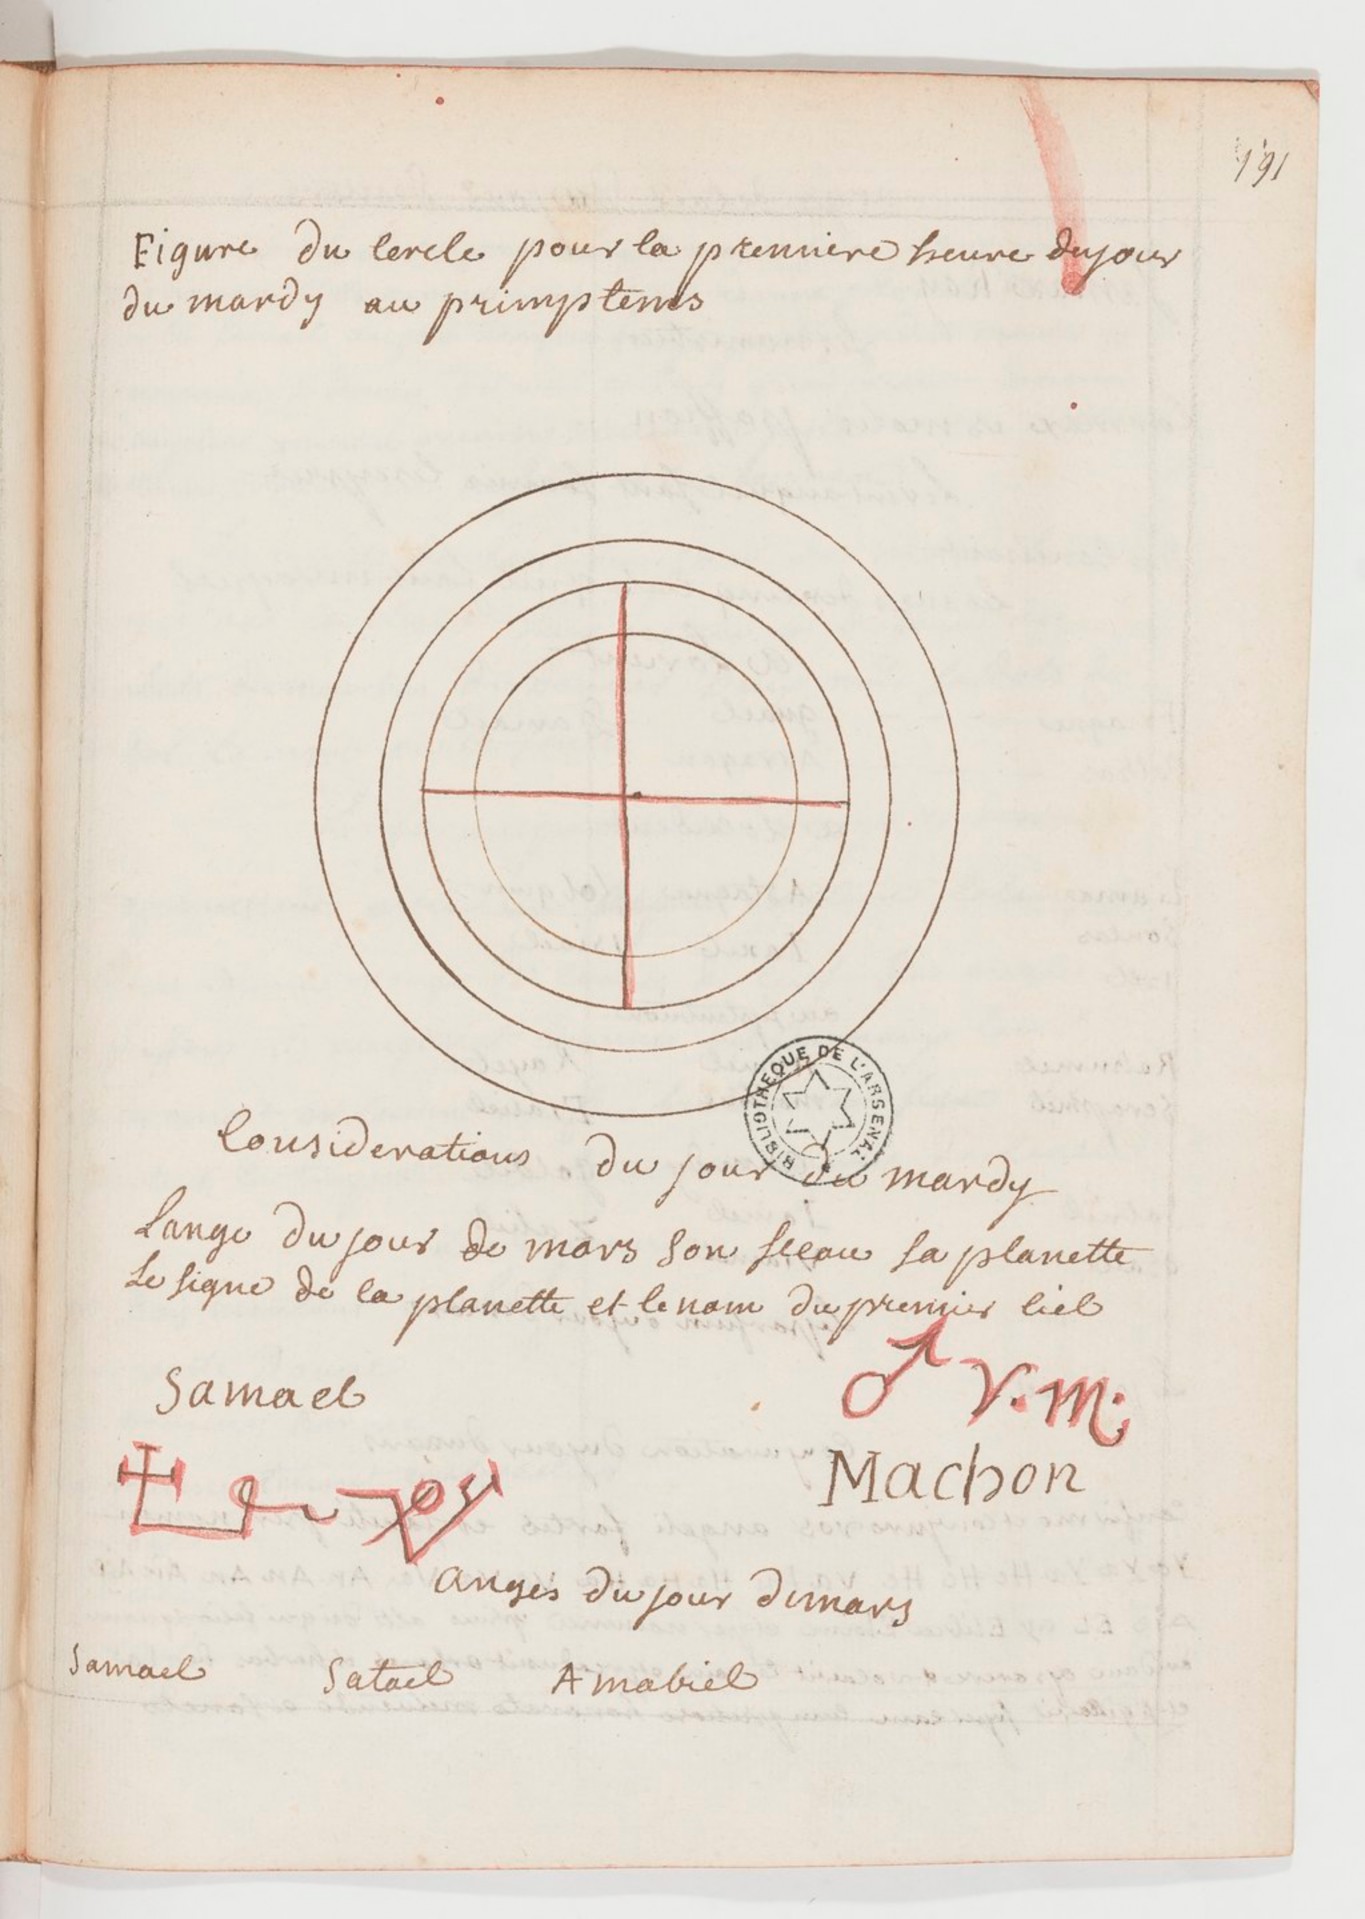 191
Figure du Cercle pour la premiere heure dujour
du mardy au primptems
BIBLIOTHEQUE DE L'ARSENAL
Considerations du jour du mardy
Lange du jour de mars son sceau sa planette
Le signe de la planette et le nom du premier Ciel
Samael
♂ V. M.
Machon
anges du jour demars
Samael Satael Amabiel